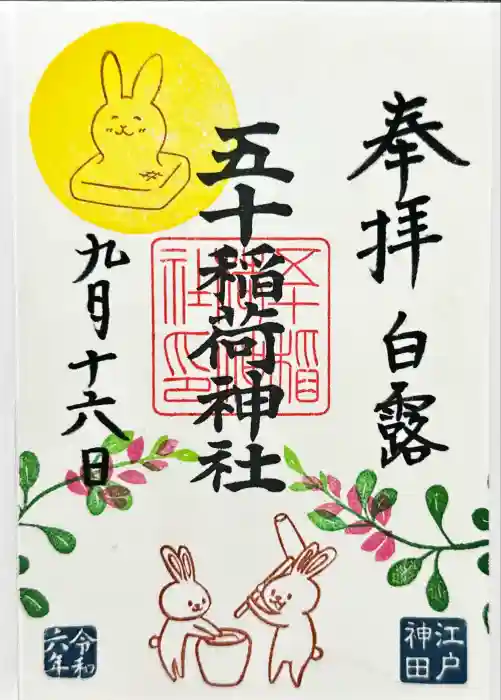 奉拝 白露
五十稲荷神社
九月十六日
江戸
神田
令和
六年